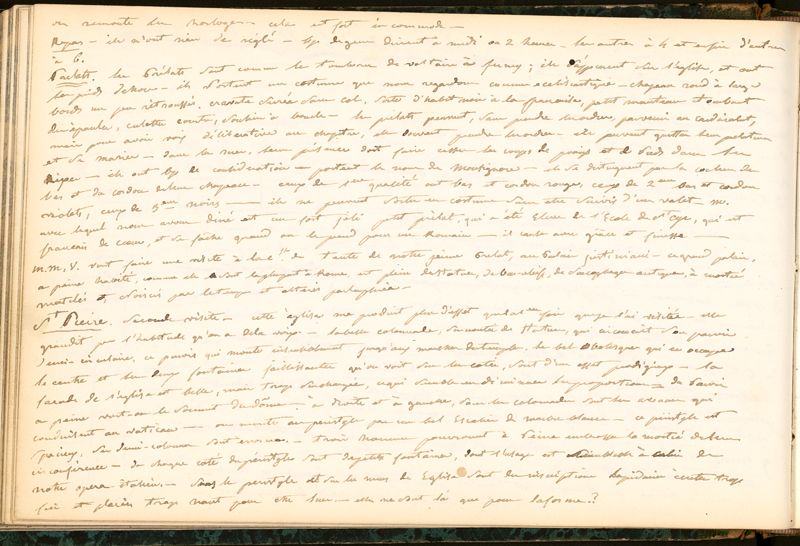 on remonte les horloges — cela est fort incommode —
Repas — ils n'ont rien de réglé — les dinent à midi ou 2 heures, les autres à 4 et enfin d'autres
à 6.
Prélats. les Prélats sont comme le tambour de voltaire à ferney; ils dépendent de l'église, et ont
les pieds dehors — ils portent un costume que nous regardons comme ecclésiastique — chapeau rond à larges
bords un peu retroussés, cravate sans col, habit noir à la française, petit manteau tombant
des épaules, culotte courte, souliers à boucles — les prélats peuvent, sans prendre les ordres, parvenir au cardinalat,
mais pour avoir voix délibérative au chapitre, ils doivent prendre les ordres — ils peuvent quitter
et se marier — dans la rue, leur présence doit faire cesser les coups de poings et de pieds dans les
rixes — ils ont de considération — portent le nom de Monsignore — ils se distinguent par la couleur des
bas et du cordon de leur chapeau — ceux de 1ere qualité ont bas et cordon rouges, ceux de 2eme bas et cordon
violets, ceux de 3eme noirs — ils ne peuvent sortir en costume sans être suivis d'un valet. m.
avec lequel nous avons diné est un fort joli petit prélat, qui a été élève de l'Ecole de St Cyr, qui est
français de coeur, et se fâche quand on le prend pour un Romain — il cause avec grâce et finesse —
m.m. V. vont faire une visite à la tante de notre jeune Prélat, au Palais justiniani — ce grand palais,
à peine habité, comme ils le sont la plupart à Rome, est plein de statues, de bas-reliefs, de sarcophages antiques, à moitié
mutilés et noircis par le temps et
St Pierre. Seconde visite — cette église me produit plus d'effet que la 1ere fois que je l'ai visitée — elle
grandit par l'habitude qu'on a de la voir — la belle colonnade, surmontée de statues, qui
demi-circulaire, ce parvis qui monte insensiblement jusqu'aux marches du temple, le bel obélisque qui en occupe
le centre et les deux fontaines jaillissantes qu'on voit sur les côtés, sont d'un effet prodigieux — la
façade de l'église est belle, mais trop surchargée, ce qui semble en diminuer les proportions — du Parvis
à peine voit-on le sommet du dôme — à droite et à gauche, sous les colonnades sont les qui
conduisent au vatican — on monte au péristyle par un bel Escalier de marbre blanc — ce péristyle est
, les demi-colonnes sont énormes — trois hommes pourraient à peine embrasser la moitié de leur
circonférence — de chaque côté du péristyle sont de petites fontaines, dont l'usage est semblable à celui de
notre opéra italien. — Sous le péristyle et sur les murs de l'Eglise sont des inscriptions lapidaires écrites trop
fin et placées trop haut pour être lues — elles ne sont là que pour la forme..?